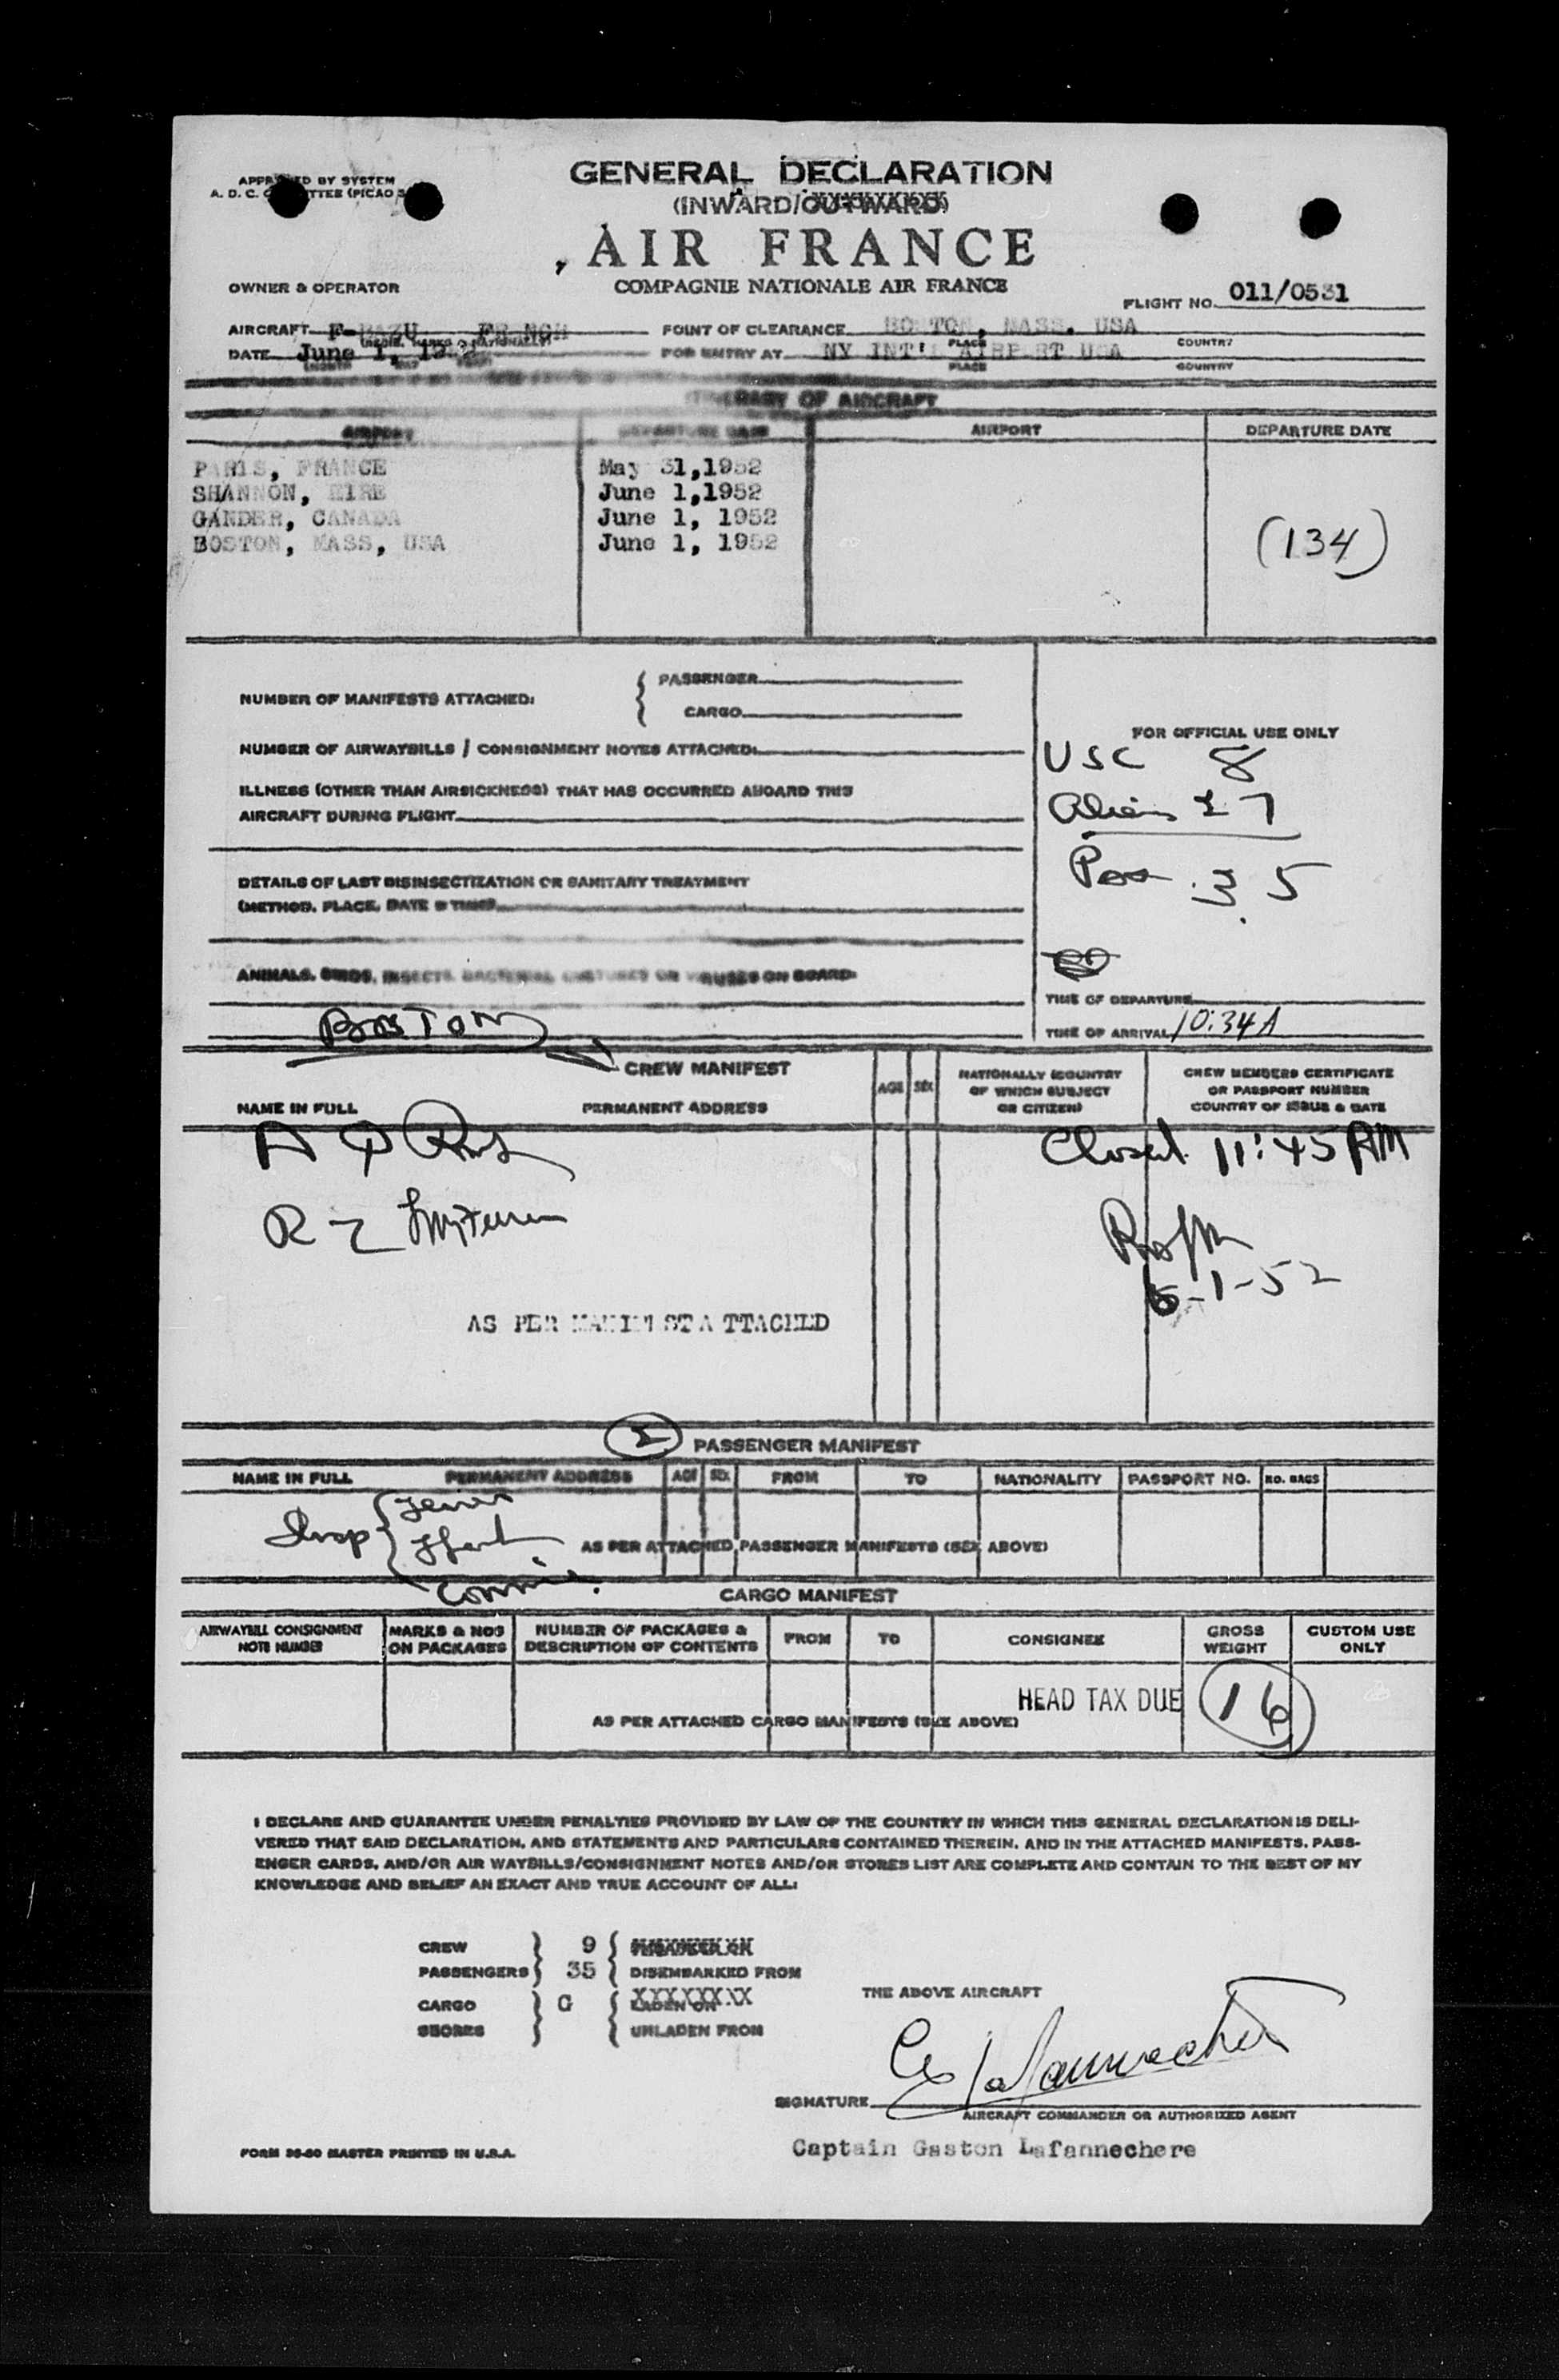 GENERAL DECLARATION
(INWARD/OUTWARD)
AIR FRANCE
COMPAGNIE NATIONALE AIR FRANCE
BY SYSTEM
A. D. C. (PICAO
OWNER & OPERATOR
FLIGHT NO. 011/0531
AIRCRAFT
POINT OF CLEARANCE BOSTON, MASS. USA
PLACE COUNTRY
DATE June 1,
FOR ENTRY AT NY INT'L AIRPORT USA
PLACE COUNTRY
OF AIRCRAFT
AIRPORT DEPARTURE DATE AIRPORT DEPARTURE DATE
PARIS, FRANCE May 31,1952
SHANNON, EIRE June 1,1952
GANDER, CANADA June 1, 1952
BOSTON, MASS, USA June 1, 1952
(134)
NUMBER OF MANIFESTS ATTACHED: PASSENGER
CARGO
NUMBER OF AIRWAYBILLS / CONSIGNMENT NOTES ATTACHED:
ILLNESS (OTHER THAN AIRSICKNESS) THAT HAS OCCURRED ABOARD THIS
AIRCRAFT DURING FLIGHT
DETAILS OF LAST DISINSECTIZATION OR SANITARY TREATMENT
(METHOD, PLACE, DATE & TIME)
ANIMALS, BIRDS, INSECTS, BACTERIAL CULTURES OR VIRUSES ON BOARD
FOR OFFICIAL USE ONLY
USC 8
Aliens 27
Pass 35
TIME OF DEPARTURE
TIME OF ARRIVAL 10:34A
BOSTON
CREW MANIFEST
NAME IN FULL PERMANENT ADDRESS AGE SEX NATIONALLY (COUNTRY
OF WHICH SUBJECT
OR CITIZEN)
CREW MEMBERS CERTIFICATE
OR PASSPORT NUMBER
COUNTRY OF ISSUE & DATE
Closed 11:45 AM
6-1-52
AS PER MANIFEST ATTACHED
PASSENGER MANIFEST
NAME IN FULL PERMANENT ADDRESS AGE SEX FROM TO NATIONALITY PASSPORT NO. NO. BAGS
AS PER ATTACHED PASSENGER MANIFESTS (SEE ABOVE)
CARGO MANIFEST
AIRWAYBILL CONSIGNMENT
NOTE NUMBER
MARKS & NOS
ON PACKAGES
NUMBER OF PACKAGES &
DESCRIPTION OF CONTENTS
FROM TO CONSIGNEE
GROSS
WEIGHT
CUSTOM USE
ONLY
HEAD TAX DUE 16
AS PER ATTACHED CARGO MANIFESTS (SEE ABOVE)
I DECLARE AND GUARANTEE UNDER PENALTIES PROVIDED BY LAW OF THE COUNTRY IN WHICH THIS GENERAL DECLARATION IS DELI-
VERED THAT SAID DECLARATION, AND STATEMENTS AND PARTICULARS CONTAINED THEREIN, AND IN THE ATTACHED MANIFESTS, PASS-
ENGER CARDS, AND/OR AIR WAYBILLS/CONSIGNMENT NOTES AND/OR STORES LIST ARE COMPLETE AND CONTAIN TO THE BEST OF MY
KNOWLEDGE AND BELIEF AN EXACT AND TRUE ACCOUNT OF ALL:
CREW 9
PASSENGERS 35 DISEMBARKED FROM
THE ABOVE AIRCRAFT
CARGO G LADEN ON
STORES UNLADEN FROM
SIGNATURE
AIRCRAFT COMMANDER OR AUTHORIZED AGENT
Captain Gaston Lafannechere
FORM 36-60 MASTER PRINTED IN U.S.A.